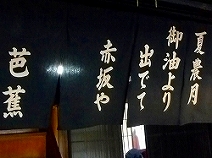 夏農月
御油より
出でて
赤坂や
芭蕉